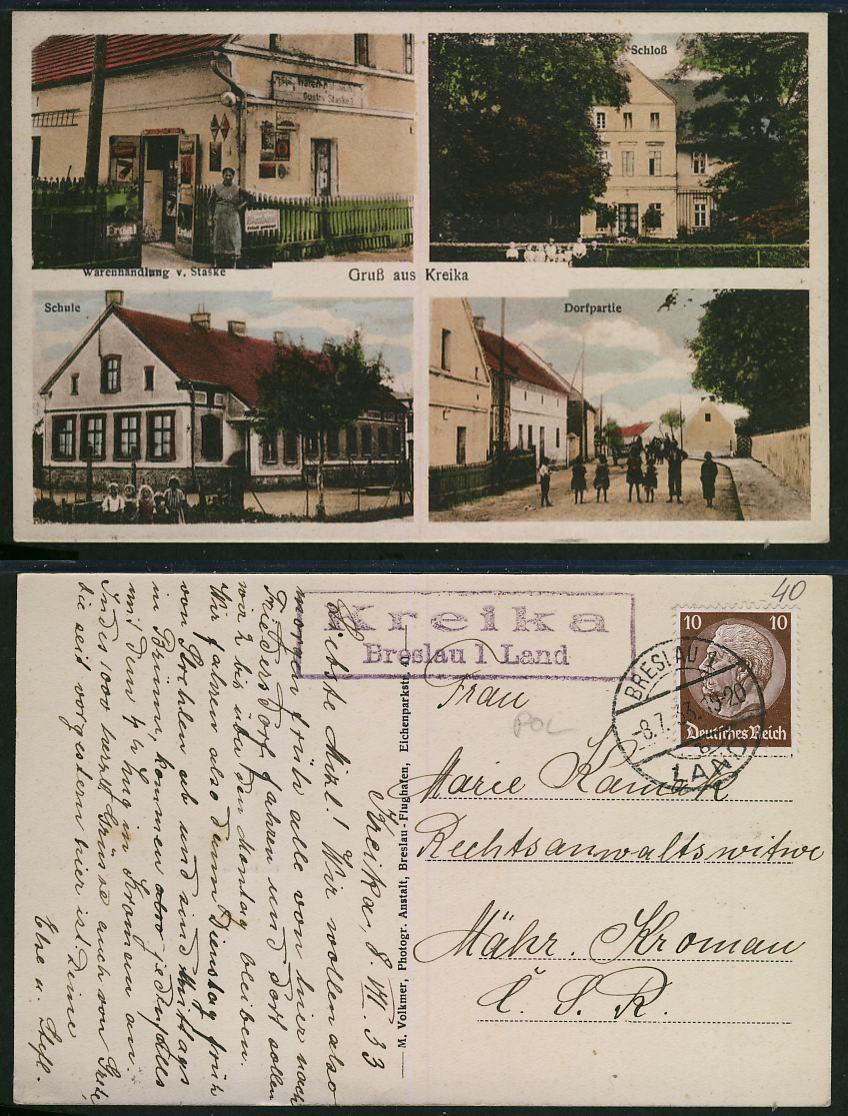 Waren
Gustv Staske
Erdal
Warenhandlung v. Staske
Schloß
Gruß aus Kreika
Schule
Dorfpartie
40
Kreika
Breslau 1 Land
BRESLAU 1
-8.7.33.
LAND
10 10
Deutsches Reich
POL
Frau
Marie Kamak
Rechtsanwaltswitwe
Mähr. Kromau
Č. S. R.
— M. Volkmer, Photogr. Anstalt, Breslau-Flughafen, Eichenparkstr.
Kreika, 8. VII. 33
Liebste Mizl! Wir wollen also
morgen früh alle von hier nach
Friedersdorf fahren und dort sollen
wir bis über den Montag bleiben.
Wir fahren also dann Dienstag früh
von Strehlen ab und sind Mittags
in Brünn, kommen also jedenfalls
mit dem Zug in Kromau an.
Indes 1000 herzl. Grüsse auch von Grete,
die seit vorgestern hier ist. Deine
Else u.